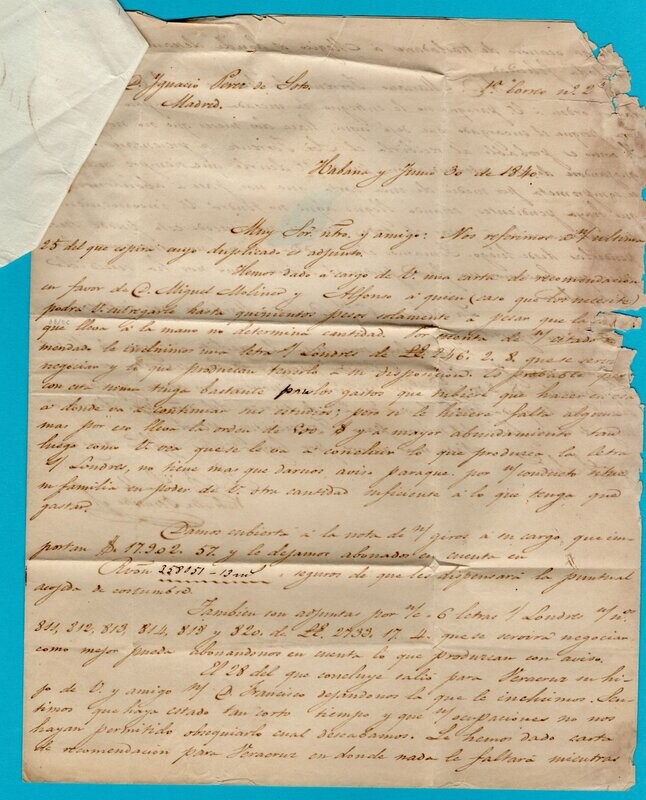 D. Ignacio Perez de Soto 1er Correo nº 2º
Madrid.
Habana y Junio 30 de 1840
Muy Sor. ntro. y amigo: Nos referimos a n/ ultima
25 del que espira cuyo duplicado es adjunto.
Hemos dado á cargo de V. una carta de recomendacion
en favor de D. Miguel Molinos y Alfonso á quien (caso que los necesite
podrá V. entregarle hasta quinientos pesos solamente á pesar que la
que lleva á la mano no determina cantidad. Por cuenta de n/ citado
mendado le incluimos una letra s/ Londres de 246: 2. 8 que se
negociar y lo que produzcan tenerlo á su disposicion. Es probable
con esta suma tenga bastante para los gastos que tubiere que hacer en esa
á donde va á continuar sus estudios; pero si le hiciere falta alguna
mas por eso lleva la orden de 500 $ y á mayor abundamiento tan
luego como V. vea que se le va á concluir lo que produzca la letra
s/ Londres, no tiene mas que darnos aviso paraque por n/ conducto situe
su familia en poder de V. otra cantidad suficiente á lo que tenga que
gastar.
Damos cubierta á la nota de n/ giros á su cargo, que im-
portan $ 17.902. 57. y le dejamos abonados en cuenta en
Rvón 258051-13 ms, seguros de que les dispensará la puntual
acojida de costumbre.
Tambien son adjuntas por n/c 6 letras s/ Londres n/ nos.
811, 812, 813, 814, 818 y 820. de 2733. 17. 4. que se servirá negociar
como mejor pueda abonandonos en cuenta lo que produzcan con aviso.
El 28 del que concluye salió para Veracruz su hi-
jo de V. y amigo n/ D. Francisco dejandonos la que le incluimos. Sen-
timos que haya estado tan corto tiempo y que n/ ocupaciones no nos
hayan permitido obsequiarlo cual deseabamos. Le hemos dado carta
de recomendación para Veracruz en donde nada le faltará mientras